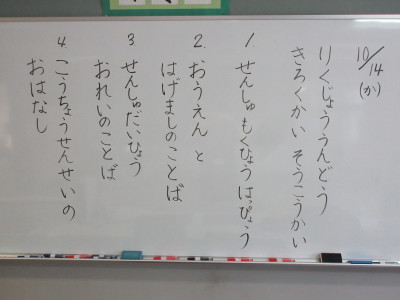 10/14(か)
りくじょううんどう
きろくかい そうこうかい
1. せんしゅもくひょうはっぴょう
2. おうえんと
はげましのことば
3. せんしゅだいひょう
おれいのことば
4. こうちょうせんせいの
おはなし